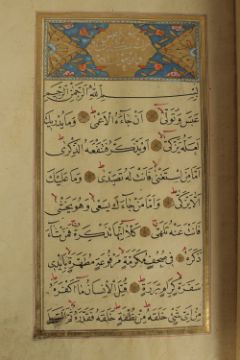 بسم الله الرحمن الرحيم
عبس وتولى ان جاءه الاعمى وما يدريك
لعله يزكى او يذكر فتنفعه الذكرى
اما من استغنى فانت له تصدى وما عليك
الا يزكى واما من جاءك يسعى وهو يخشى
فانت عنه تلهى كلا انها تذكرة فمن شاء
ذكره في صحف مكرمة مرفوعة مطهرة بايدى
سفرة كرام بررة قتل الانسان ما اكفره
من اى شئ خلقه من نطفة خلقه فقدره ثم السبيل